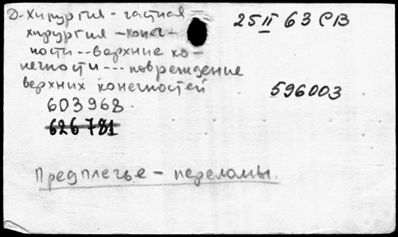 D-Хирургия - частная 25 II 63 СВ
хирургия - конеч-
ности -- верхние ко-
нечности --- повреждение
верхних конечностей 596003
603968
626781
Предплечье - переломы.